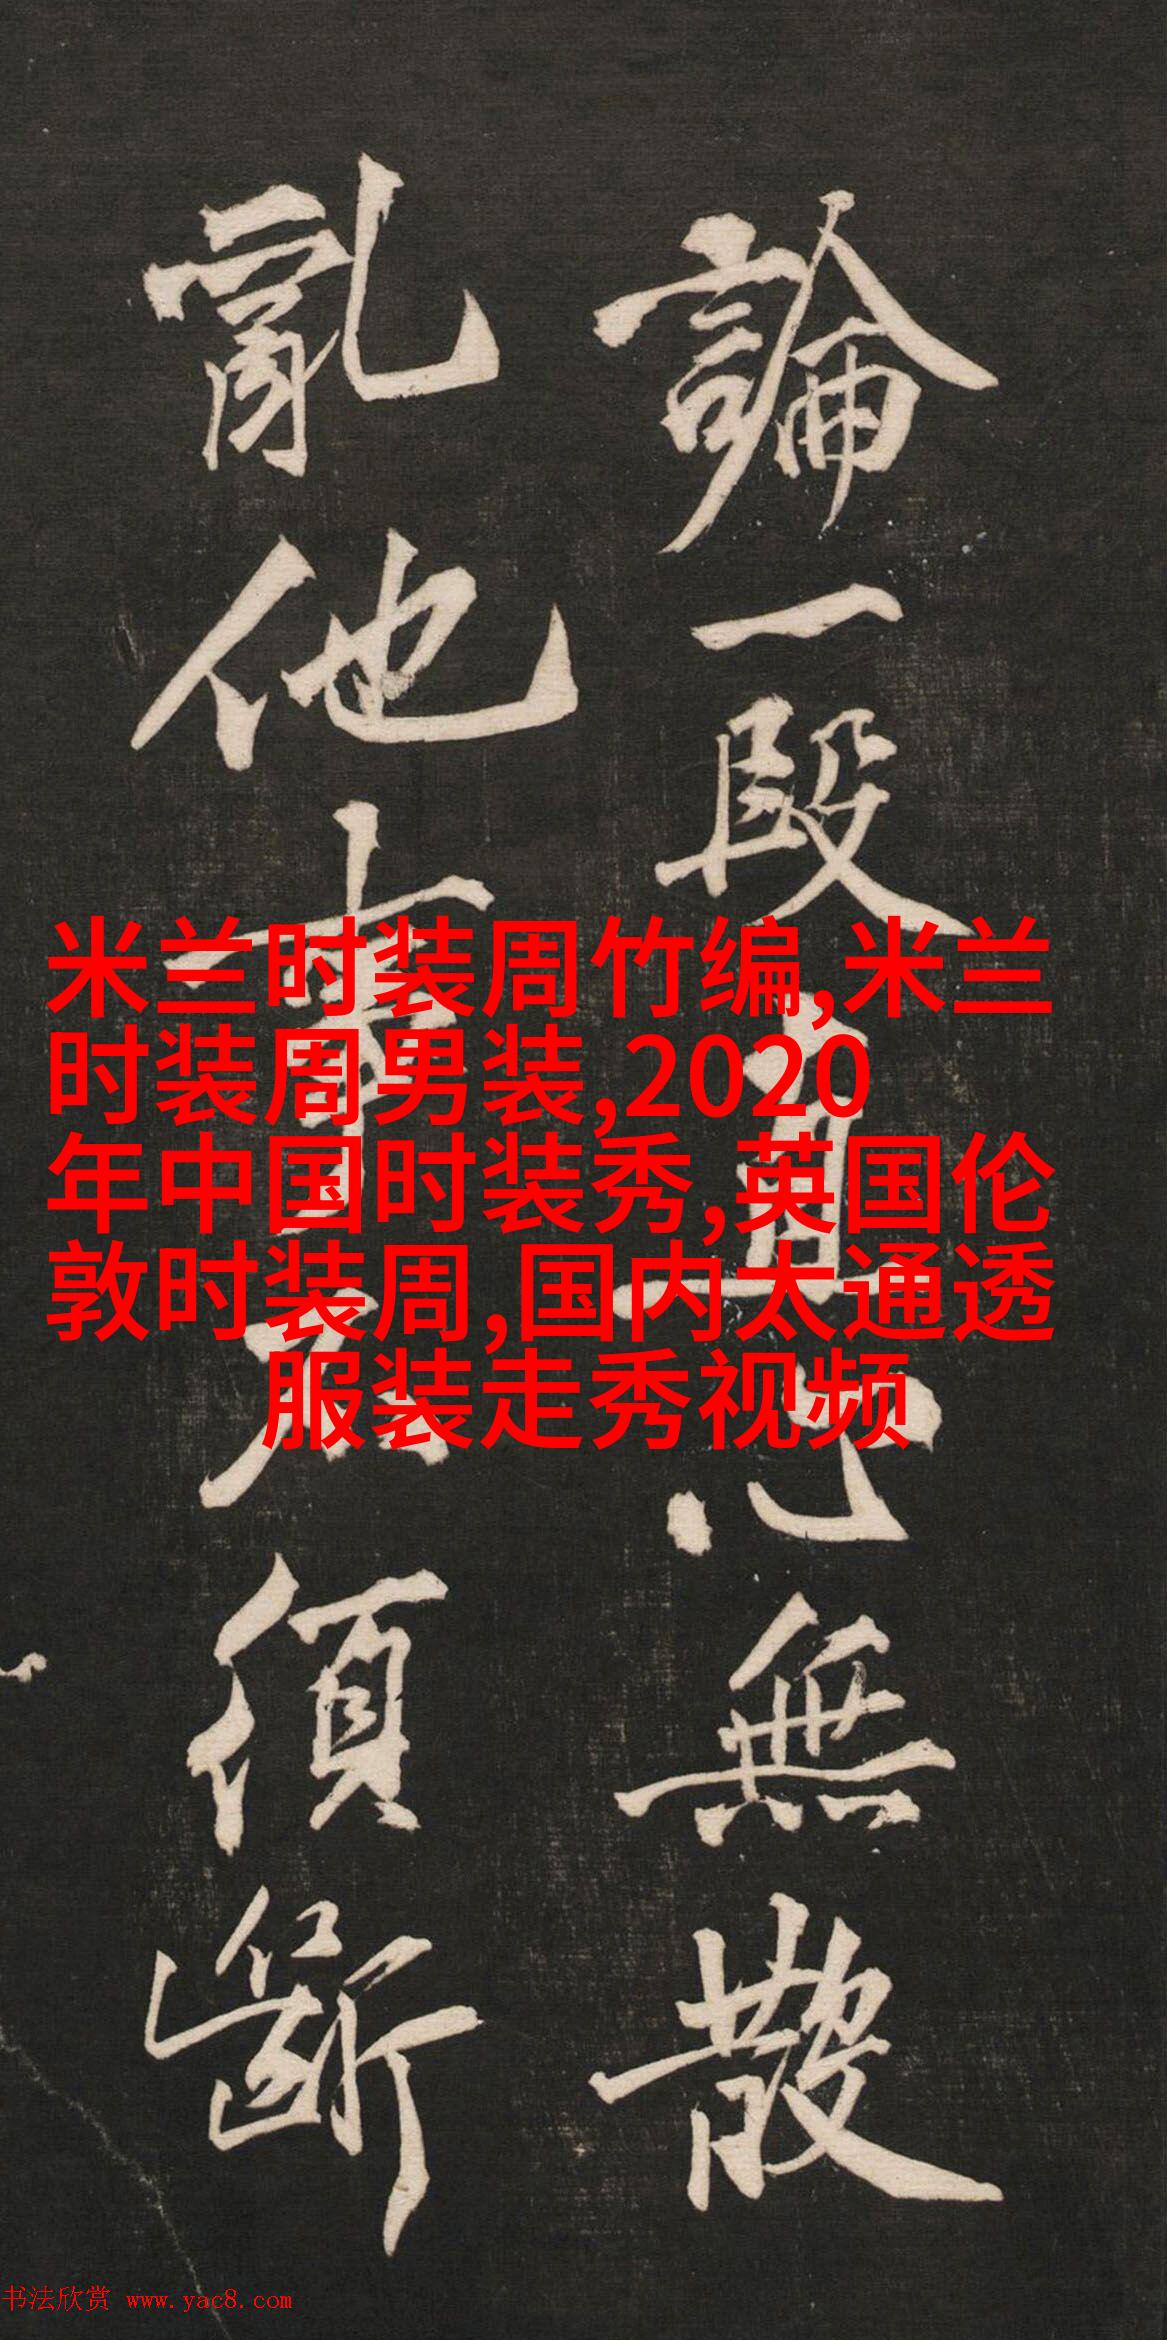 論一段直心無散
亂他事須斷
米兰时装周竹编,米兰
时装周男装,2020
年中国时装秀,英国伦
敦时装周,国内太通透
服装走秀视频
书法欣赏 www.yac8.com